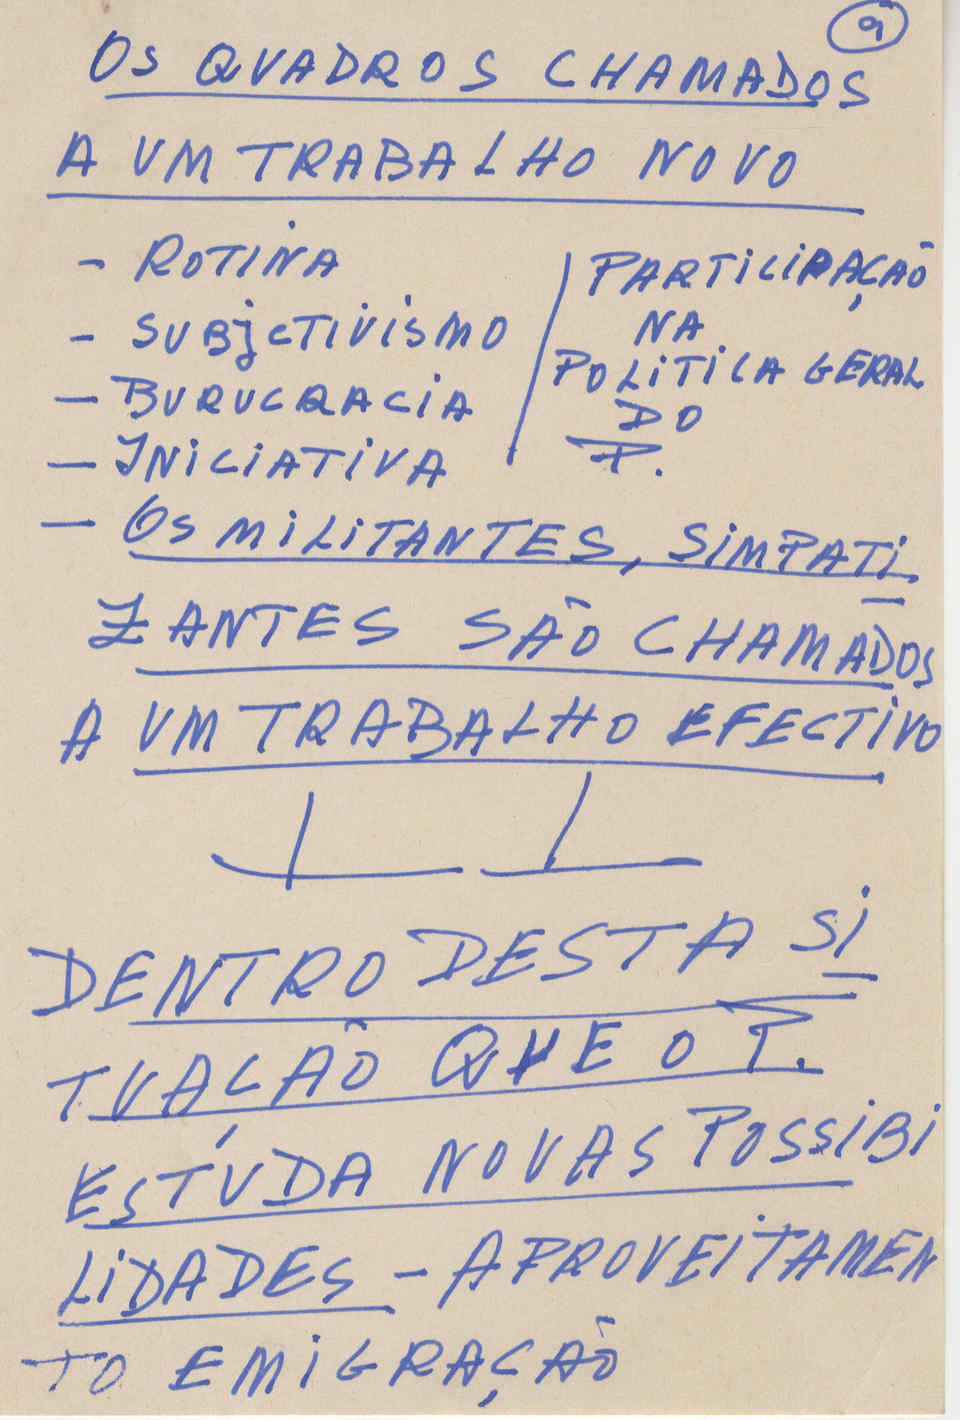 9
OS QUADROS CHAMADOS
A UM TRABALHO NOVO
- ROTINA
- SUBJCTIVISMO
- BURUCRACIA
- INICIATIVA
PARTICIPAÇAÕ
NA
POLITICA GERAL
DO
P.
- OS MILITANTES, SIMPATI-
ZANTES SÃO CHAMADOS
A UM TRABALHO EFECTIVO
DENTRO DESTA SI
TUACÃO QUE O P.
ESTÚDA NOVAS POSSIBI
LIDADES - APROVEITAMEN
TO EMIGRAÇAÕ